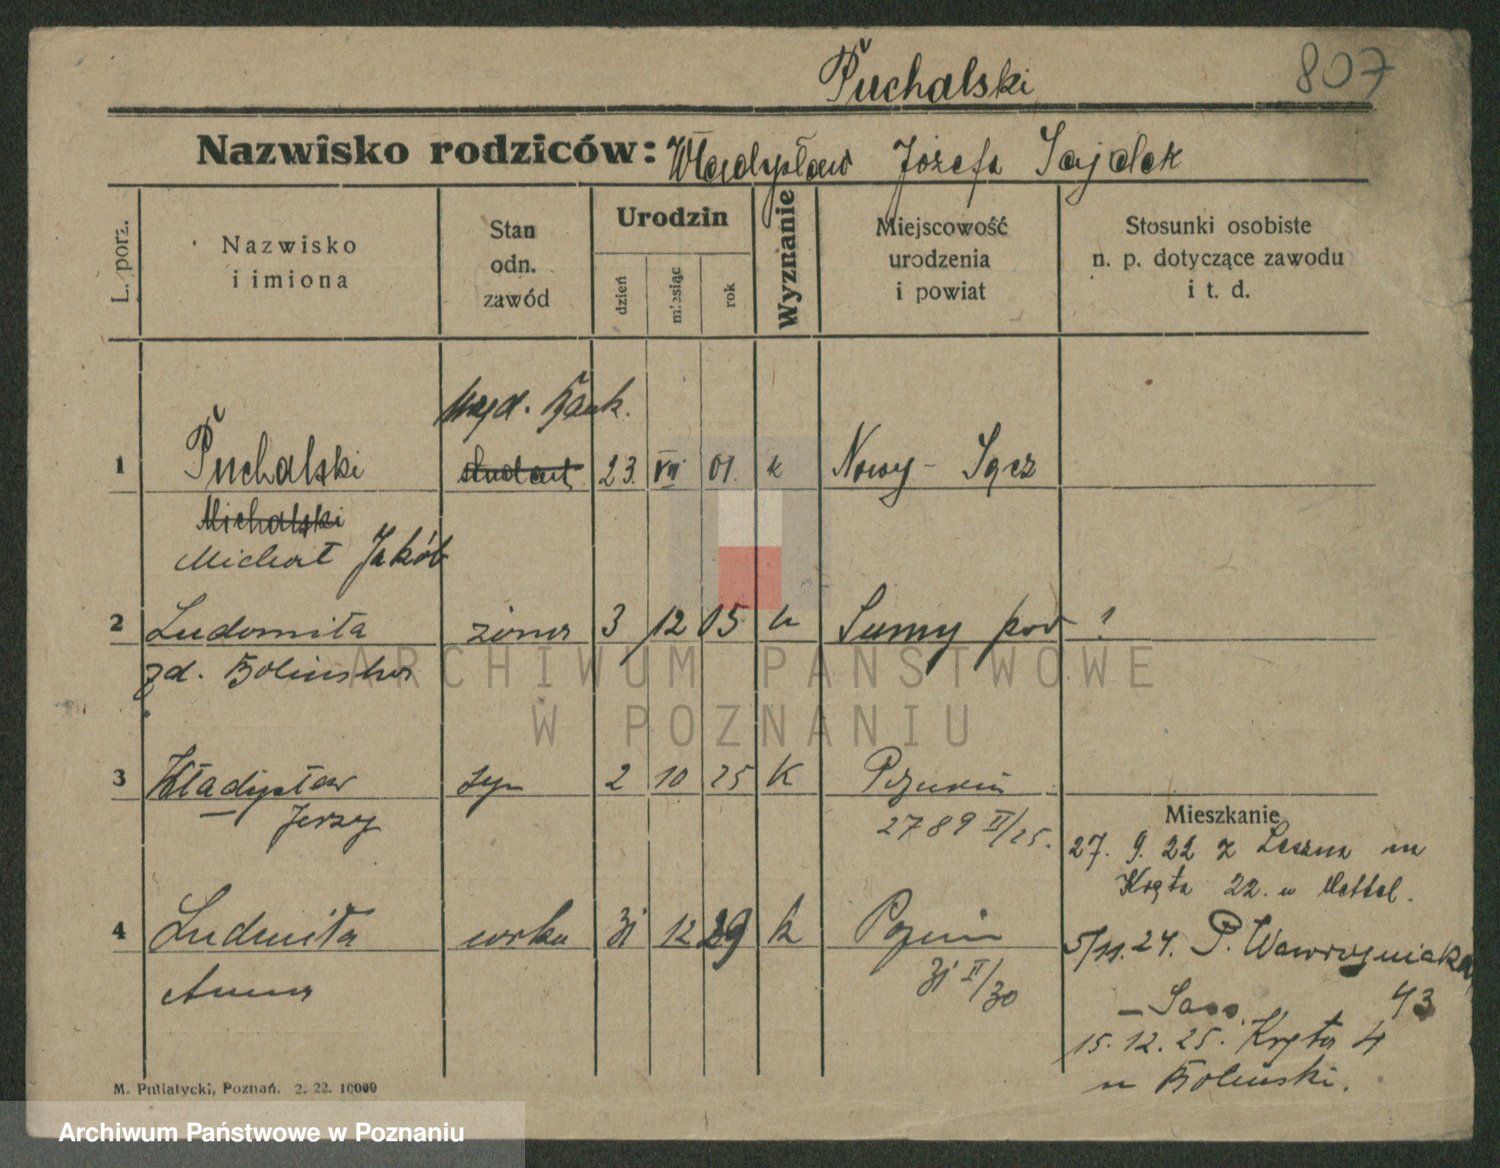 Puchalski
807
Nazwisko rodziców: Władysław Józefa Sajdek
L. porz.
Nazwisko
i imiona
Stan
odn.
zawód
Urodzin
dzień
miesiąc
rok
Wyznanie
Miejscowość
urodzenia
i powiat
Stosunki osobiste
n. p. dotyczące zawodu
i t. d.
urzęd. Bank.
1 Puchalski student 23. VII 01. k Nowy-Sącz
Michalski
Michał Jakób
2 Ludomiła żona 3 12 05 k Sumy pow ?
zd. Bolińska
3 Władysław syn 2 10 25 K Poznań
Jerzy
2789 II/25.
4 Ludmiła córka 31 12 29 k Poznań
Anna
31 II/30
Mieszkanie
27. 9. 22 z Leszna m
Kręta 22. u Nettel.
5/11. 24. P. Wawrzyniaka
– Sass. 43
15. 12. 25. Kręta 4
u Boliński.
M. Putiatycki, Poznań. 2. 22. 10000
ARCHIWUM PAŃSTWOWE
W POZNANIU
Archiwum Państwowe w Poznaniu